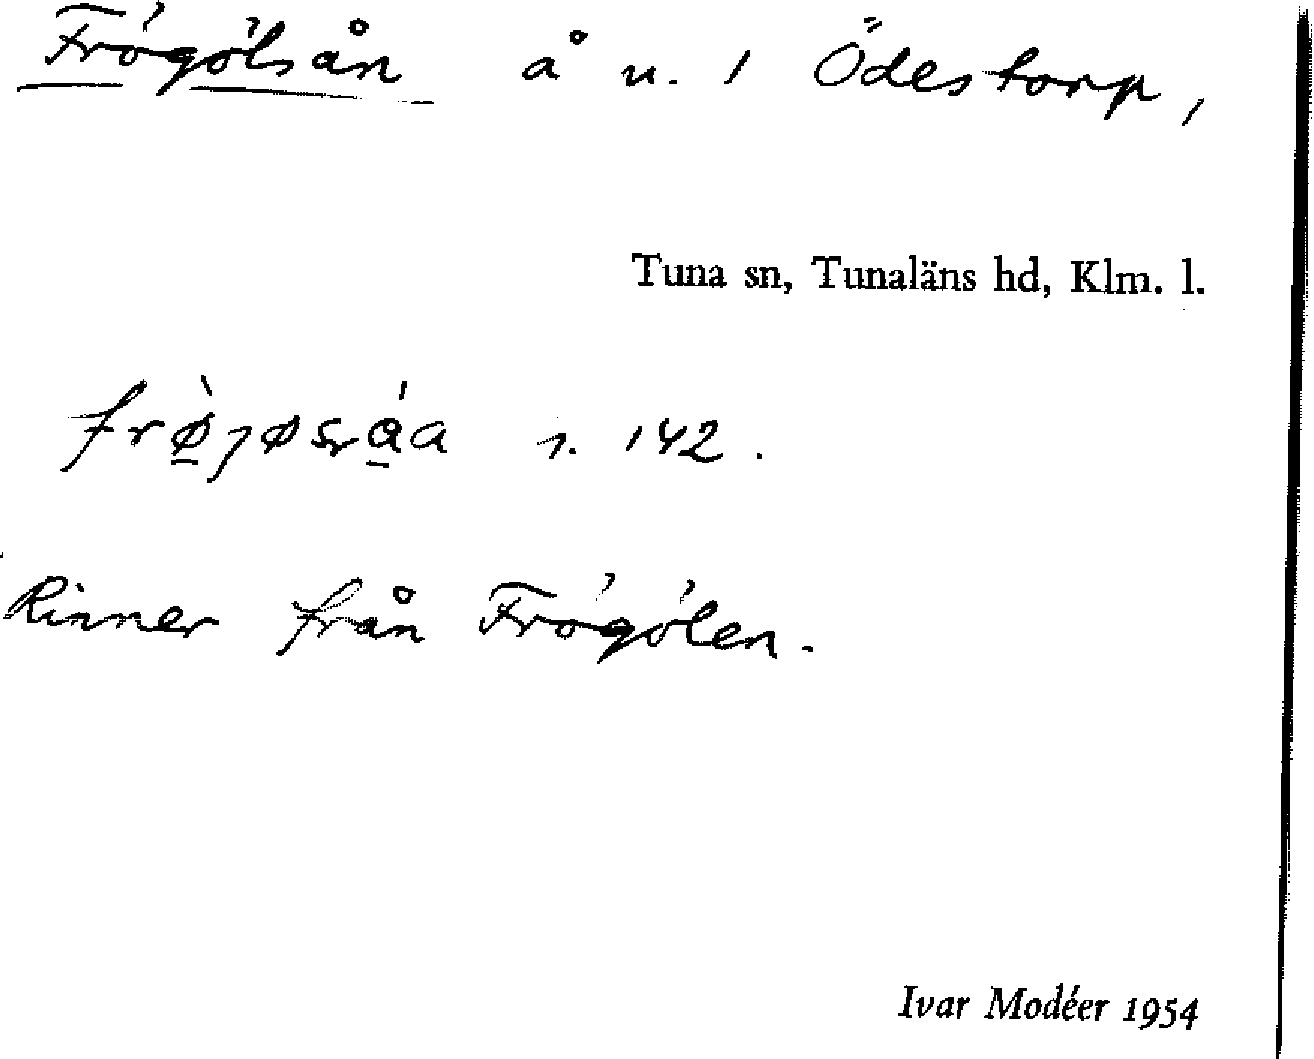 Frögölsån å u. 1 Ödestorp,
Tuna sn, Tunaläns hd, Klm. l.
s. 142.
Rinner från Frögölen.
Ivar Modéer 1954